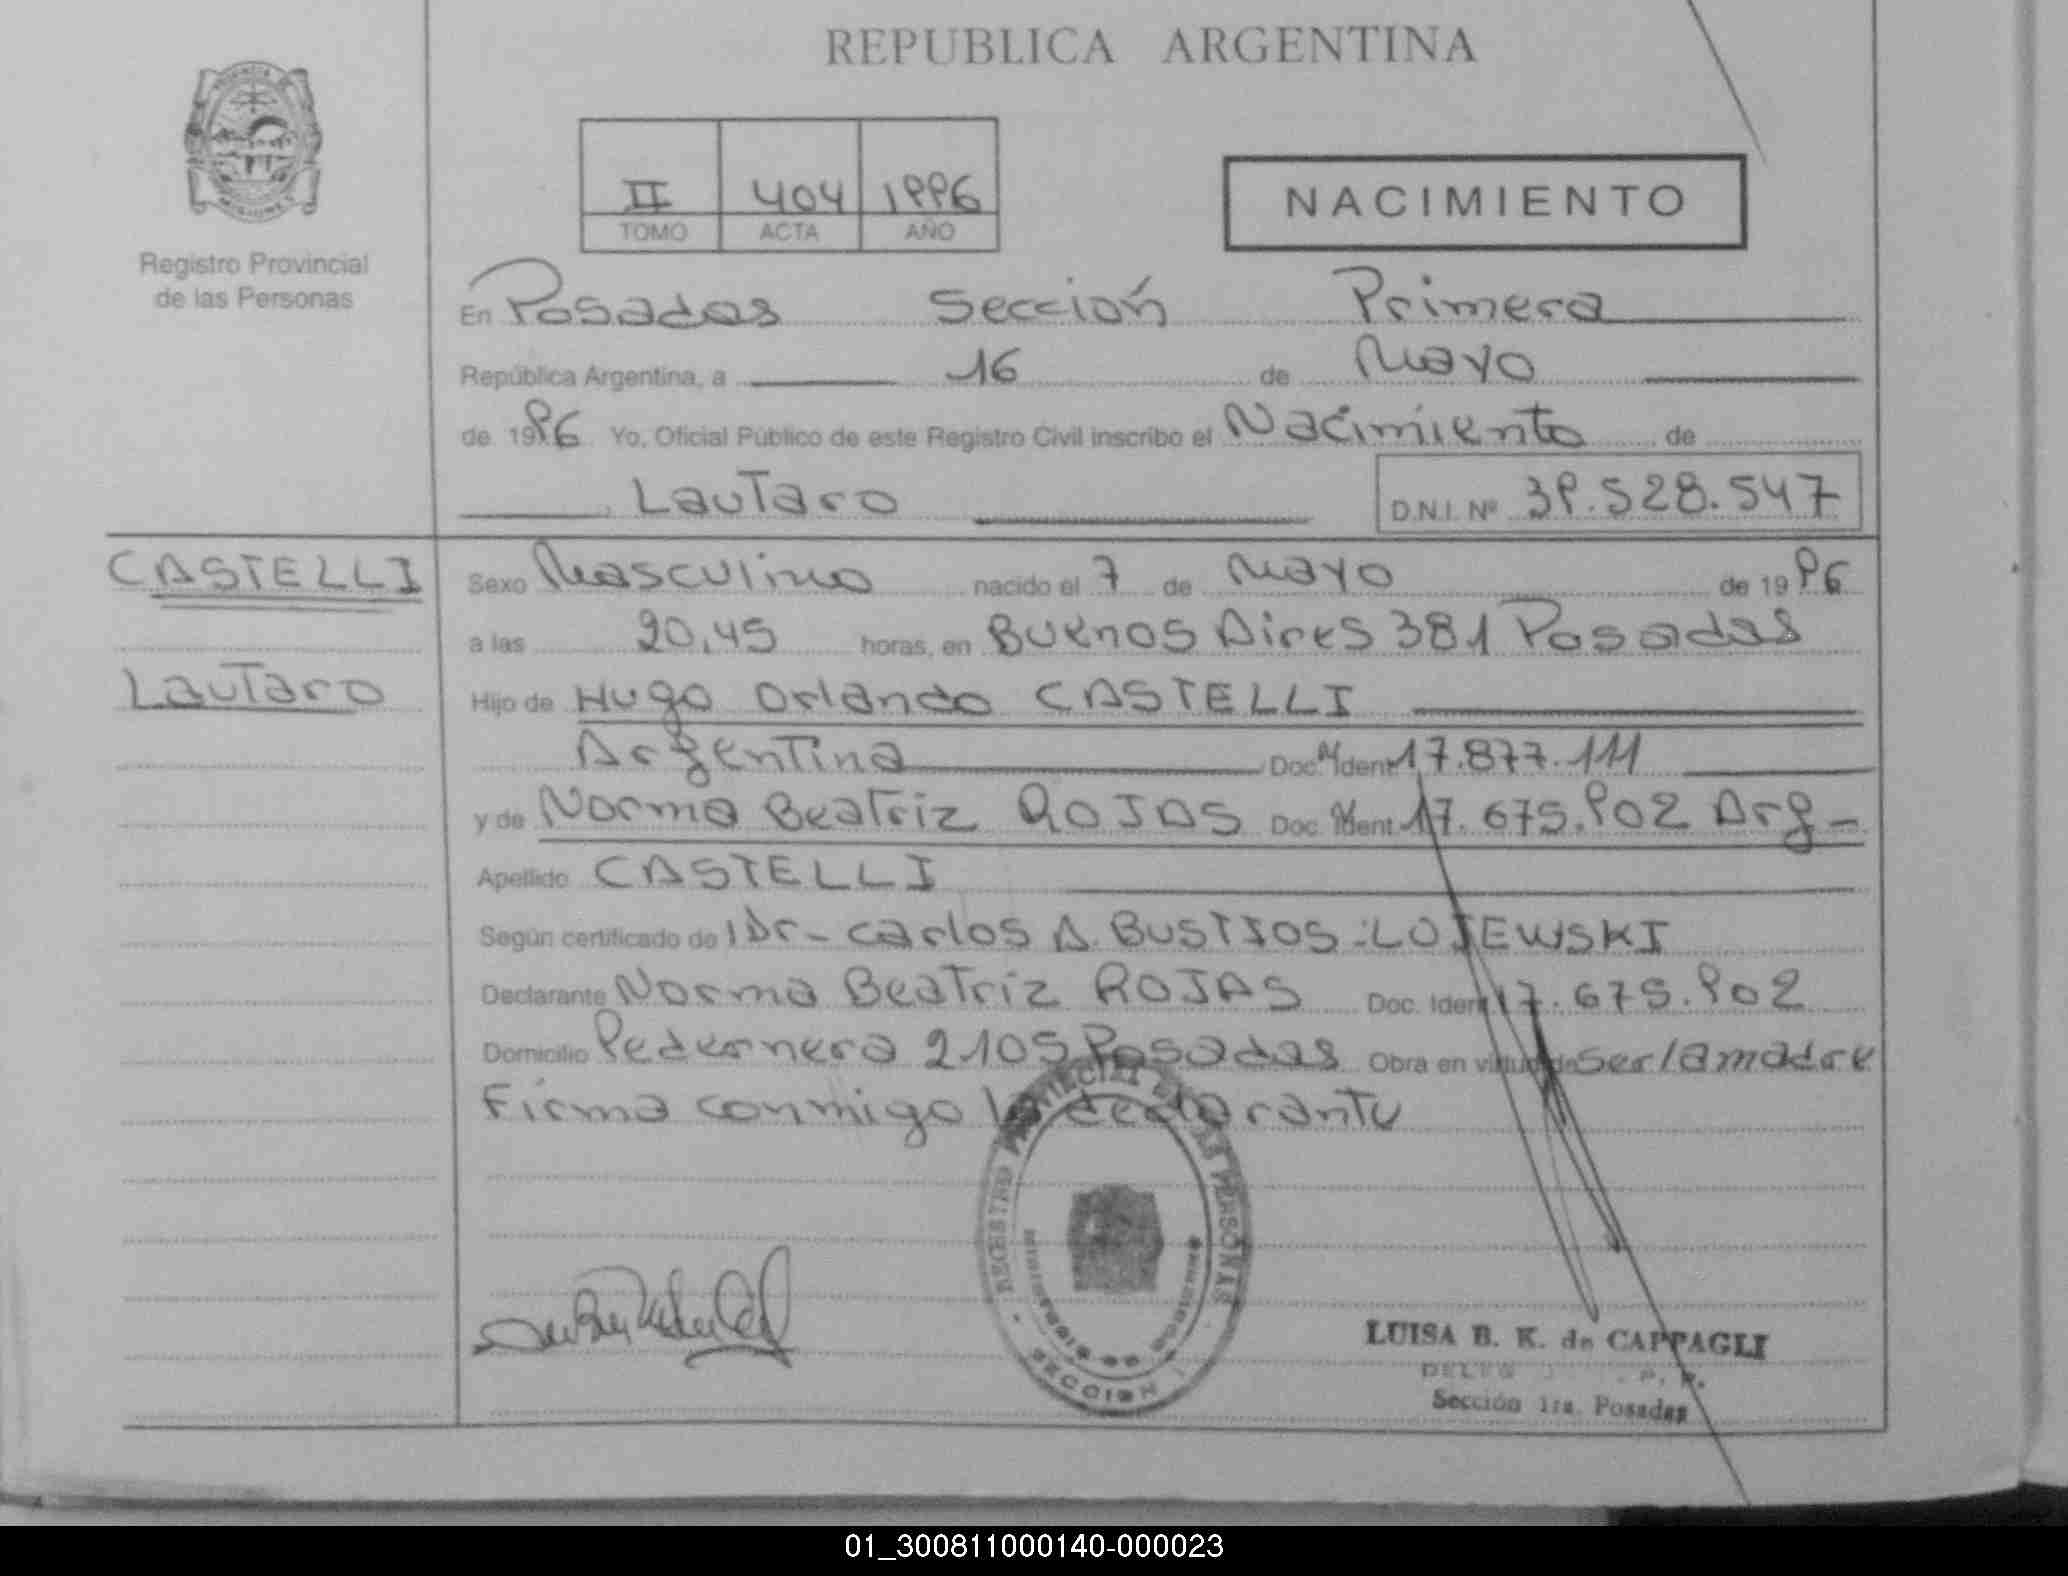 REPUBLICA ARGENTINA
PROVINCIA
MISIONES
Registro Provincial
de las Personas
II 404 1996
TOMO ACTA AÑO
NACIMIENTO
En Posadas Sección Primera
República Argentina, a 16 de Mayo
de 1996 Yo, Oficial Público de este Registro Civil inscribo el Nacimiento de
Lautaro
D.N.I. Nº 39.528.547
CASTELLI
Lautaro
Sexo Masculino nacido el 7 de Mayo de 1996
a las 20,45 horas, en Buenos Aires 381 Posadas
Hijo de Hugo Orlando CASTELLI
Argentina Doc. Ident 17.877.111
y de Norma Beatriz ROJAS Doc. Ident 17.675.902 Arg-
Apellido CASTELLI
Según certificado de Dr- Carlos A. BUSTIOS LOJEWSKI
Declarante Norma Beatriz ROJAS Doc. Ident 17.675.902
Domicilio Pedernera 2105 Posadas Obra en virtud de ser la madre
Firma conmigo la declarante
REGISTRO PROVINCIAL DE LAS PERSONAS
MINISTERIO DE GOBIERNO
SECCION 1
LUISA B. K. de CAPPAGLI
Sección 1ra. Posadas
01_300811000140-000023